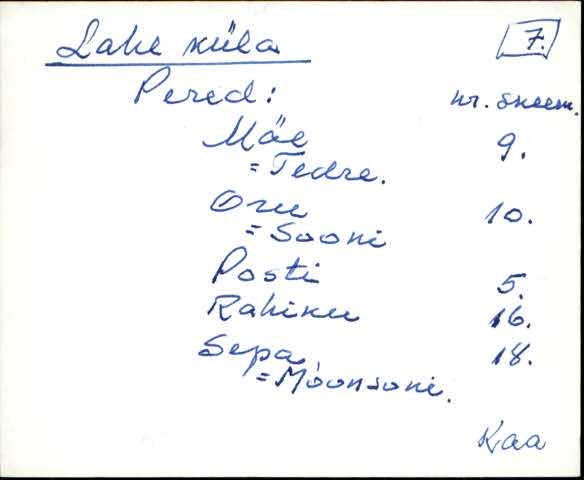 Lahe küla 7.
Pered: nr. skeem.
Mäe 9.
= Tedre.
Oru 10.
= Sooni
Posti 5.
Rahiku 16.
Sepa 18.
= Mõonsoni.
Kaa